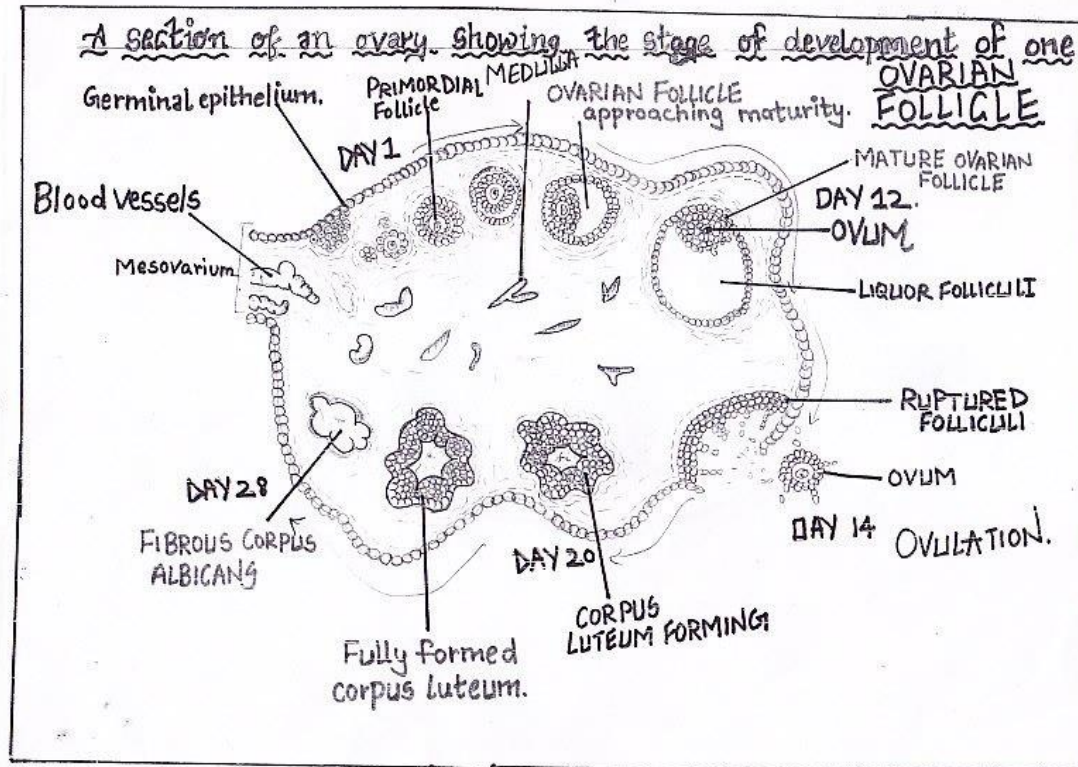 A section of an ovary showing the stage of development of one
OVARIAN
FOLLICLE
Germinal epithelium.
PRIMORDIAL
Follicle
MEDULLA
OVARIAN FOLLICLE
approaching maturity.
DAY 1
MATURE OVARIAN
FOLLICLE
Blood vessels
DAY 12.
OVUM
Mesovarium
LIQUOR FOLLICULI
RUPTURED
FOLLICULI
OVUM
DAY 28
DAY 14
OVULATION.
FIBROUS CORPUS
ALBICANS
DAY 20
CORPUS
LUTEUM FORMING
Fully formed
corpus luteum.